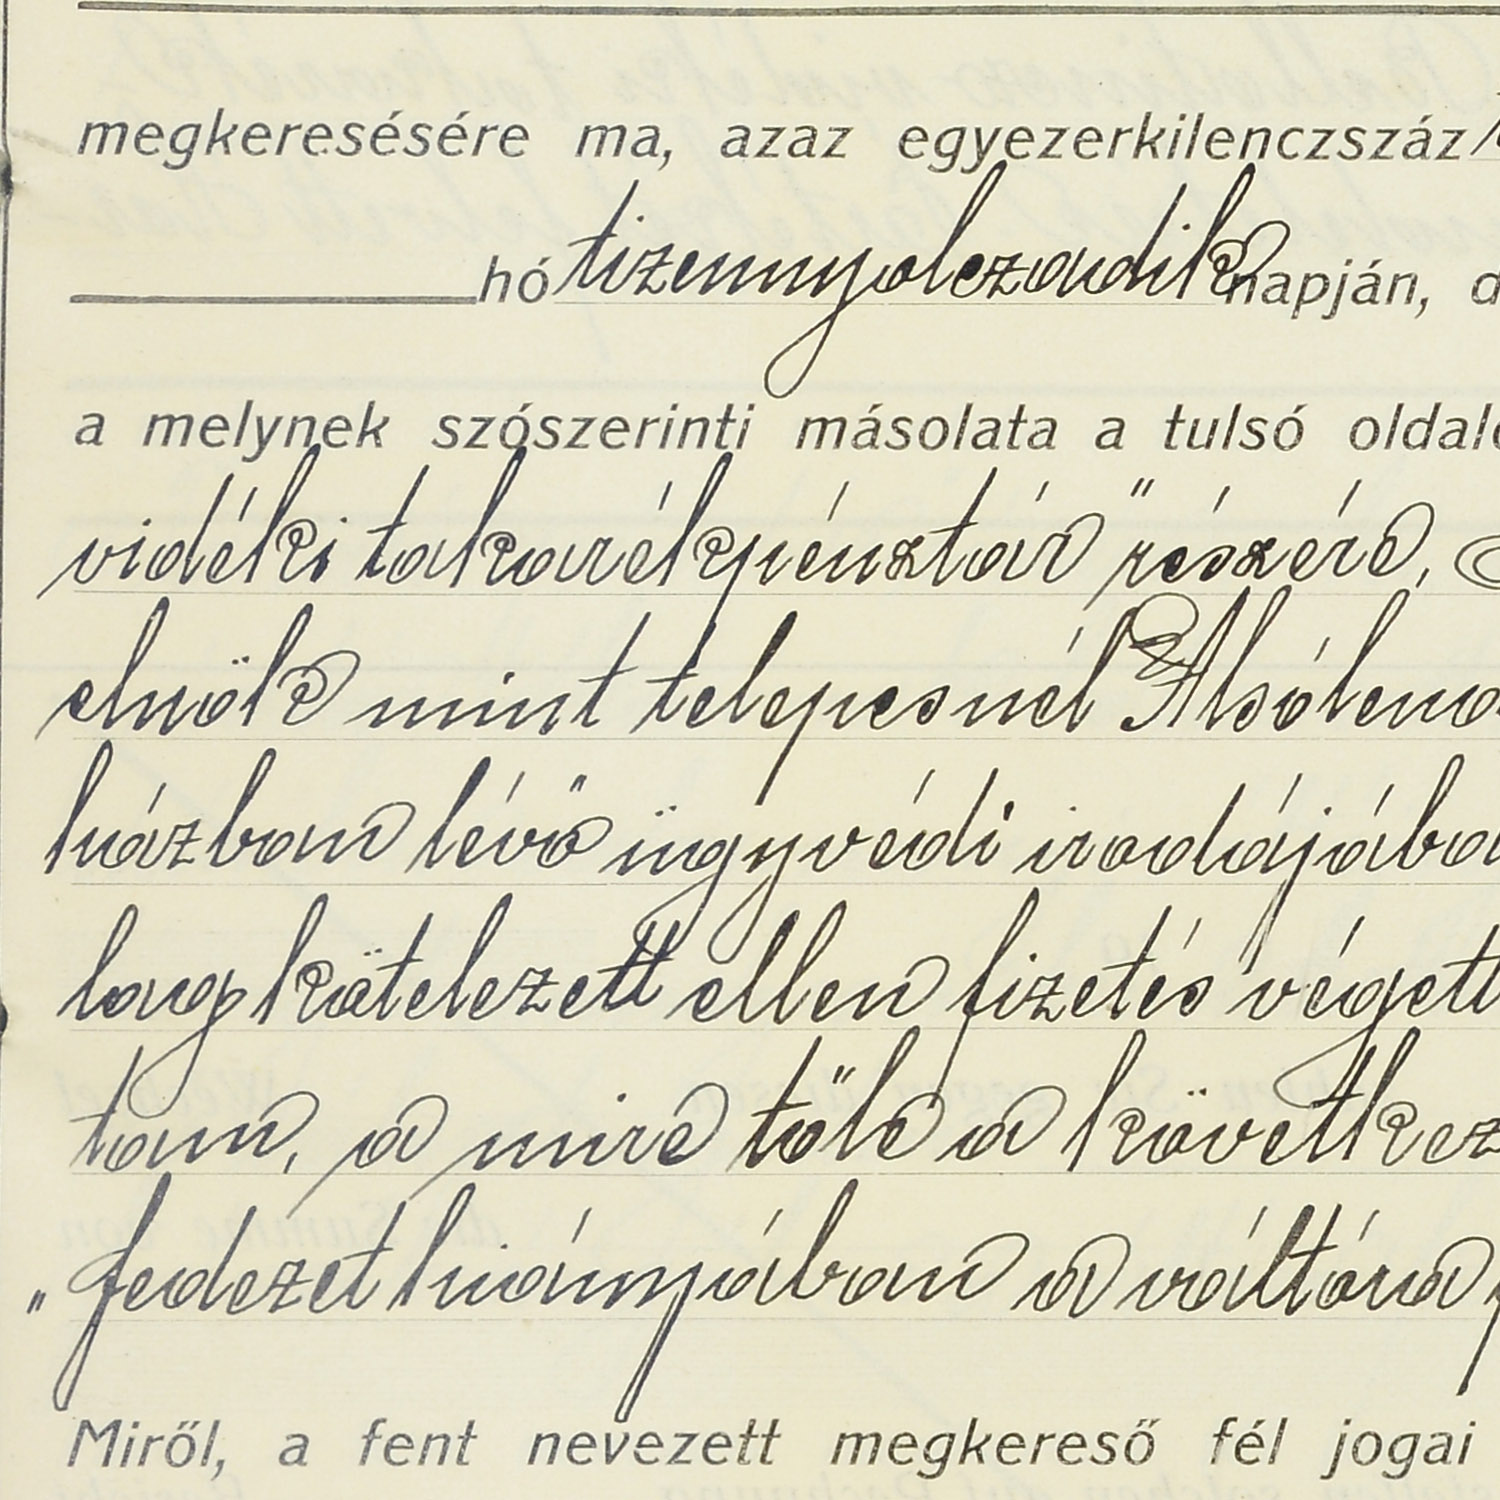 megkeresésére ma, azaz egyezerkilenczszáz
hó tizennyolczadik napján, d
a melynek szószerinti másolata a tulsó oldal
vidéki takarékpénztár" részére,
elnök mint telepesnél Alsólend
házban lévő ügyvédi irodájába
lag kötelezett ellen fizetés végett
tam, a mire tőle a következ
„fedezet hiányában a váltóra
Miről, a fent nevezett megkereső fél jogai